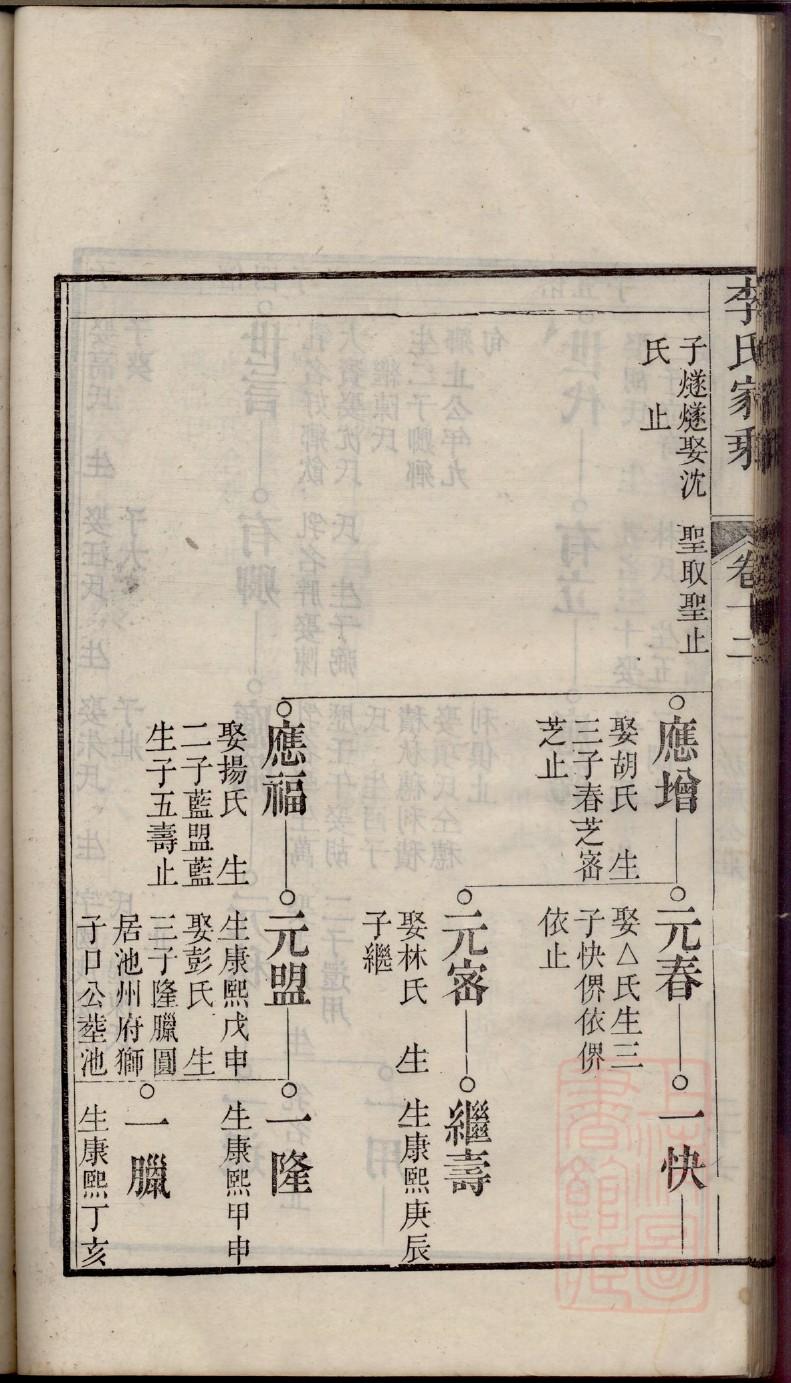 李氏家乘
卷十二
子燧燧娶沈
氏　止
聖取聖止
應增
娶胡氏　生
三子春芝宻
芝止
元春
娶△氏生三
子快㑺依㑺
依止
一快
元宻
娶林氏　生
子繼
繼壽
生康熙庚辰
應福
娶揚氏　生
二子藍盟藍
生子五壽止
元盟
生康熙戊申
娶彭氏　生
三子隆臘圓
居池州府獅
子口公塟池
一隆
生康熙甲申
一臘
生康熙丁亥
上海圖
書館藏